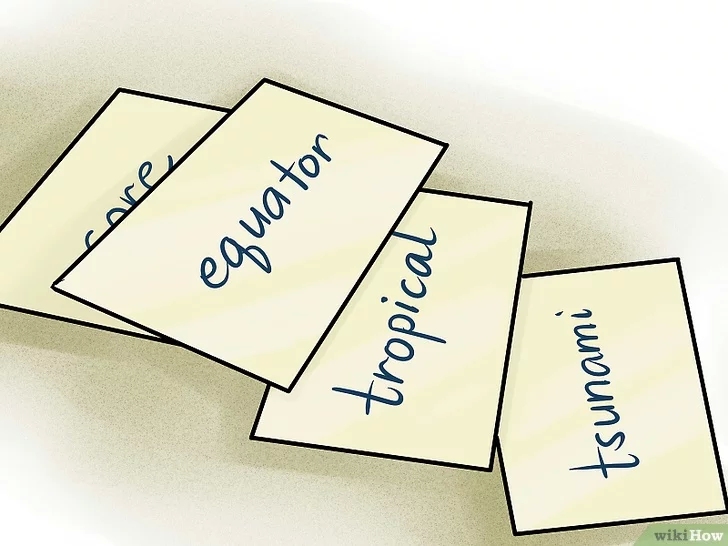 core
equator
tropical
tsunami
wikiHow